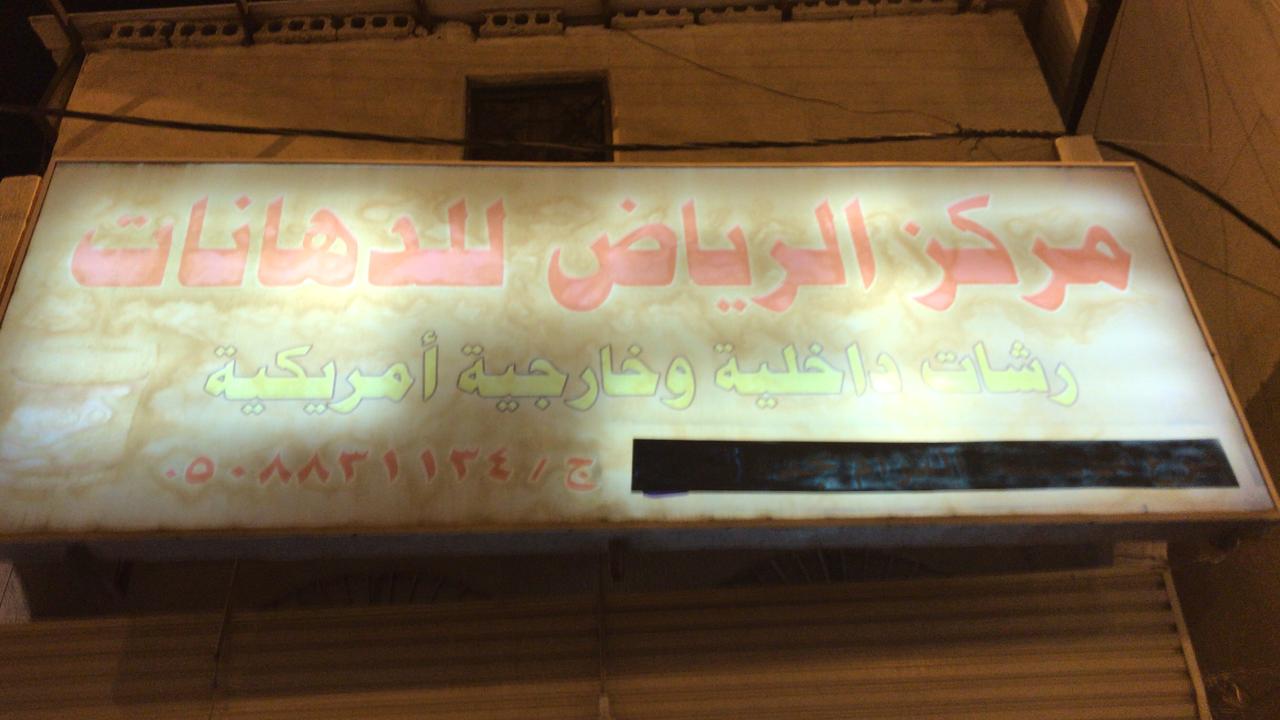 مركز الرياض للدهانات
رشات داخلية وخارجية أمريكية
ج / ٠٥٠٨٨٣١١٢٤